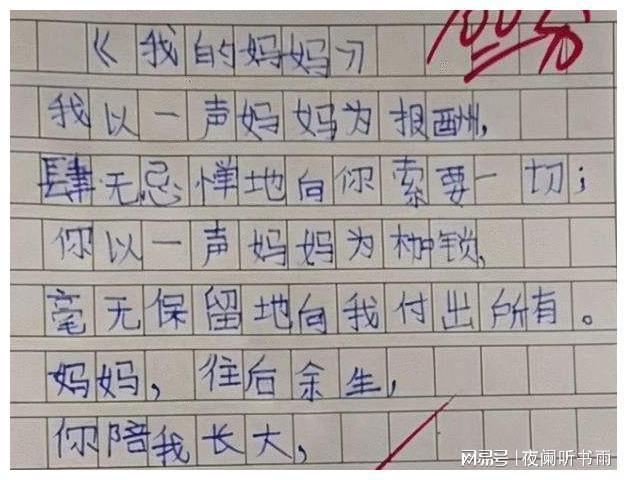 《我的妈妈》
100分
我以一声妈妈为报酬,
肆无忌惮地向你索要一切;
你以一声妈妈为枷锁,
毫无保留地向我付出所有。
妈妈,往后余生,
你陪我长大,
网易号 | 夜阑听书雨